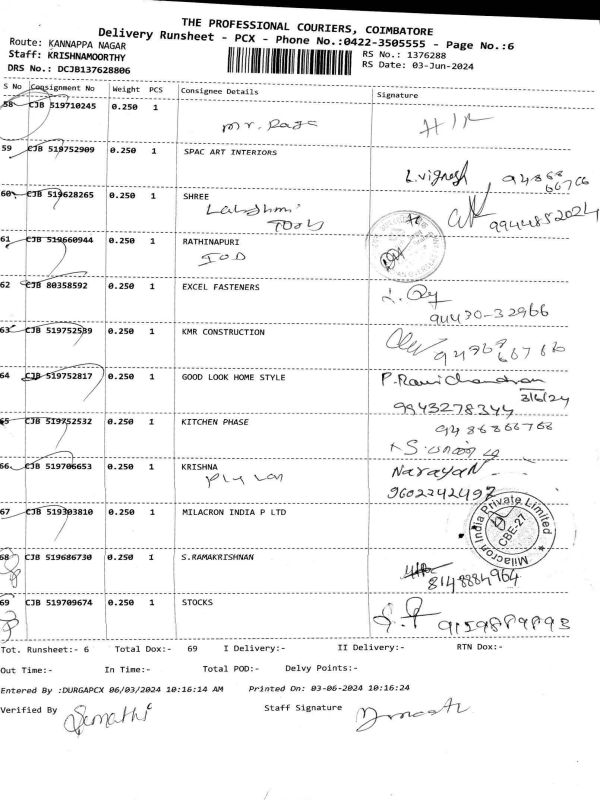 THE PROFESSIONAL COURIERS, COIMBATORE
Delivery Runsheet - PCX - Phone No.:0422-3505555 - Page No.:6
Route: KANNAPPA NAGAR
RS No.: 1376288
Staff: KRISHNAMOORTHY
RS Date: 03-Jun-2024
DRS No.: DCJB137628806
S No Consignment No Weight PCS Consignee Details Signature
58 CJB 519710245 0.250 1
Mr. Raja
59 CJB 519752909 0.250 1 SPAC ART INTERIORS
L.vignesh
60 CJB 519628265 0.250 1 SHREE
Lakshmi
Tools
9944852024
61 CJB 519660944 0.250 1 RATHINAPURI
IOD
62 CJB 80358592 0.250 1 EXCEL FASTENERS
94430-32966
63 CJB 519752539 0.250 1 KMR CONSTRUCTION
64 CJB 519752817 0.250 1 GOOD LOOK HOME STYLE
P. Ravichandran
3/6/24
9943278344
65 CJB 519752532 0.250 1 KITCHEN PHASE
66 CJB 519706653 0.250 1 KRISHNA
Narayan
9602242497
67 CJB 519303810 0.250 1 MILACRON INDIA P LTD
Milacron India Private Limited
CBE-27
68 CJB 519686730 0.250 1 S.RAMAKRISHNAN
8148884964
69 CJB 519709674 0.250 1 STOCKS
Tot. Runsheet:- 6 Total Dox:- 69 I Delivery:- II Delivery:- RTN Dox:-
Out Time:- In Time:- Total POD:- Delvy Points:-
Entered By :DURGAPCX 06/03/2024 10:16:14 AM Printed On: 03-06-2024 10:16:24
Verified By Staff Signature